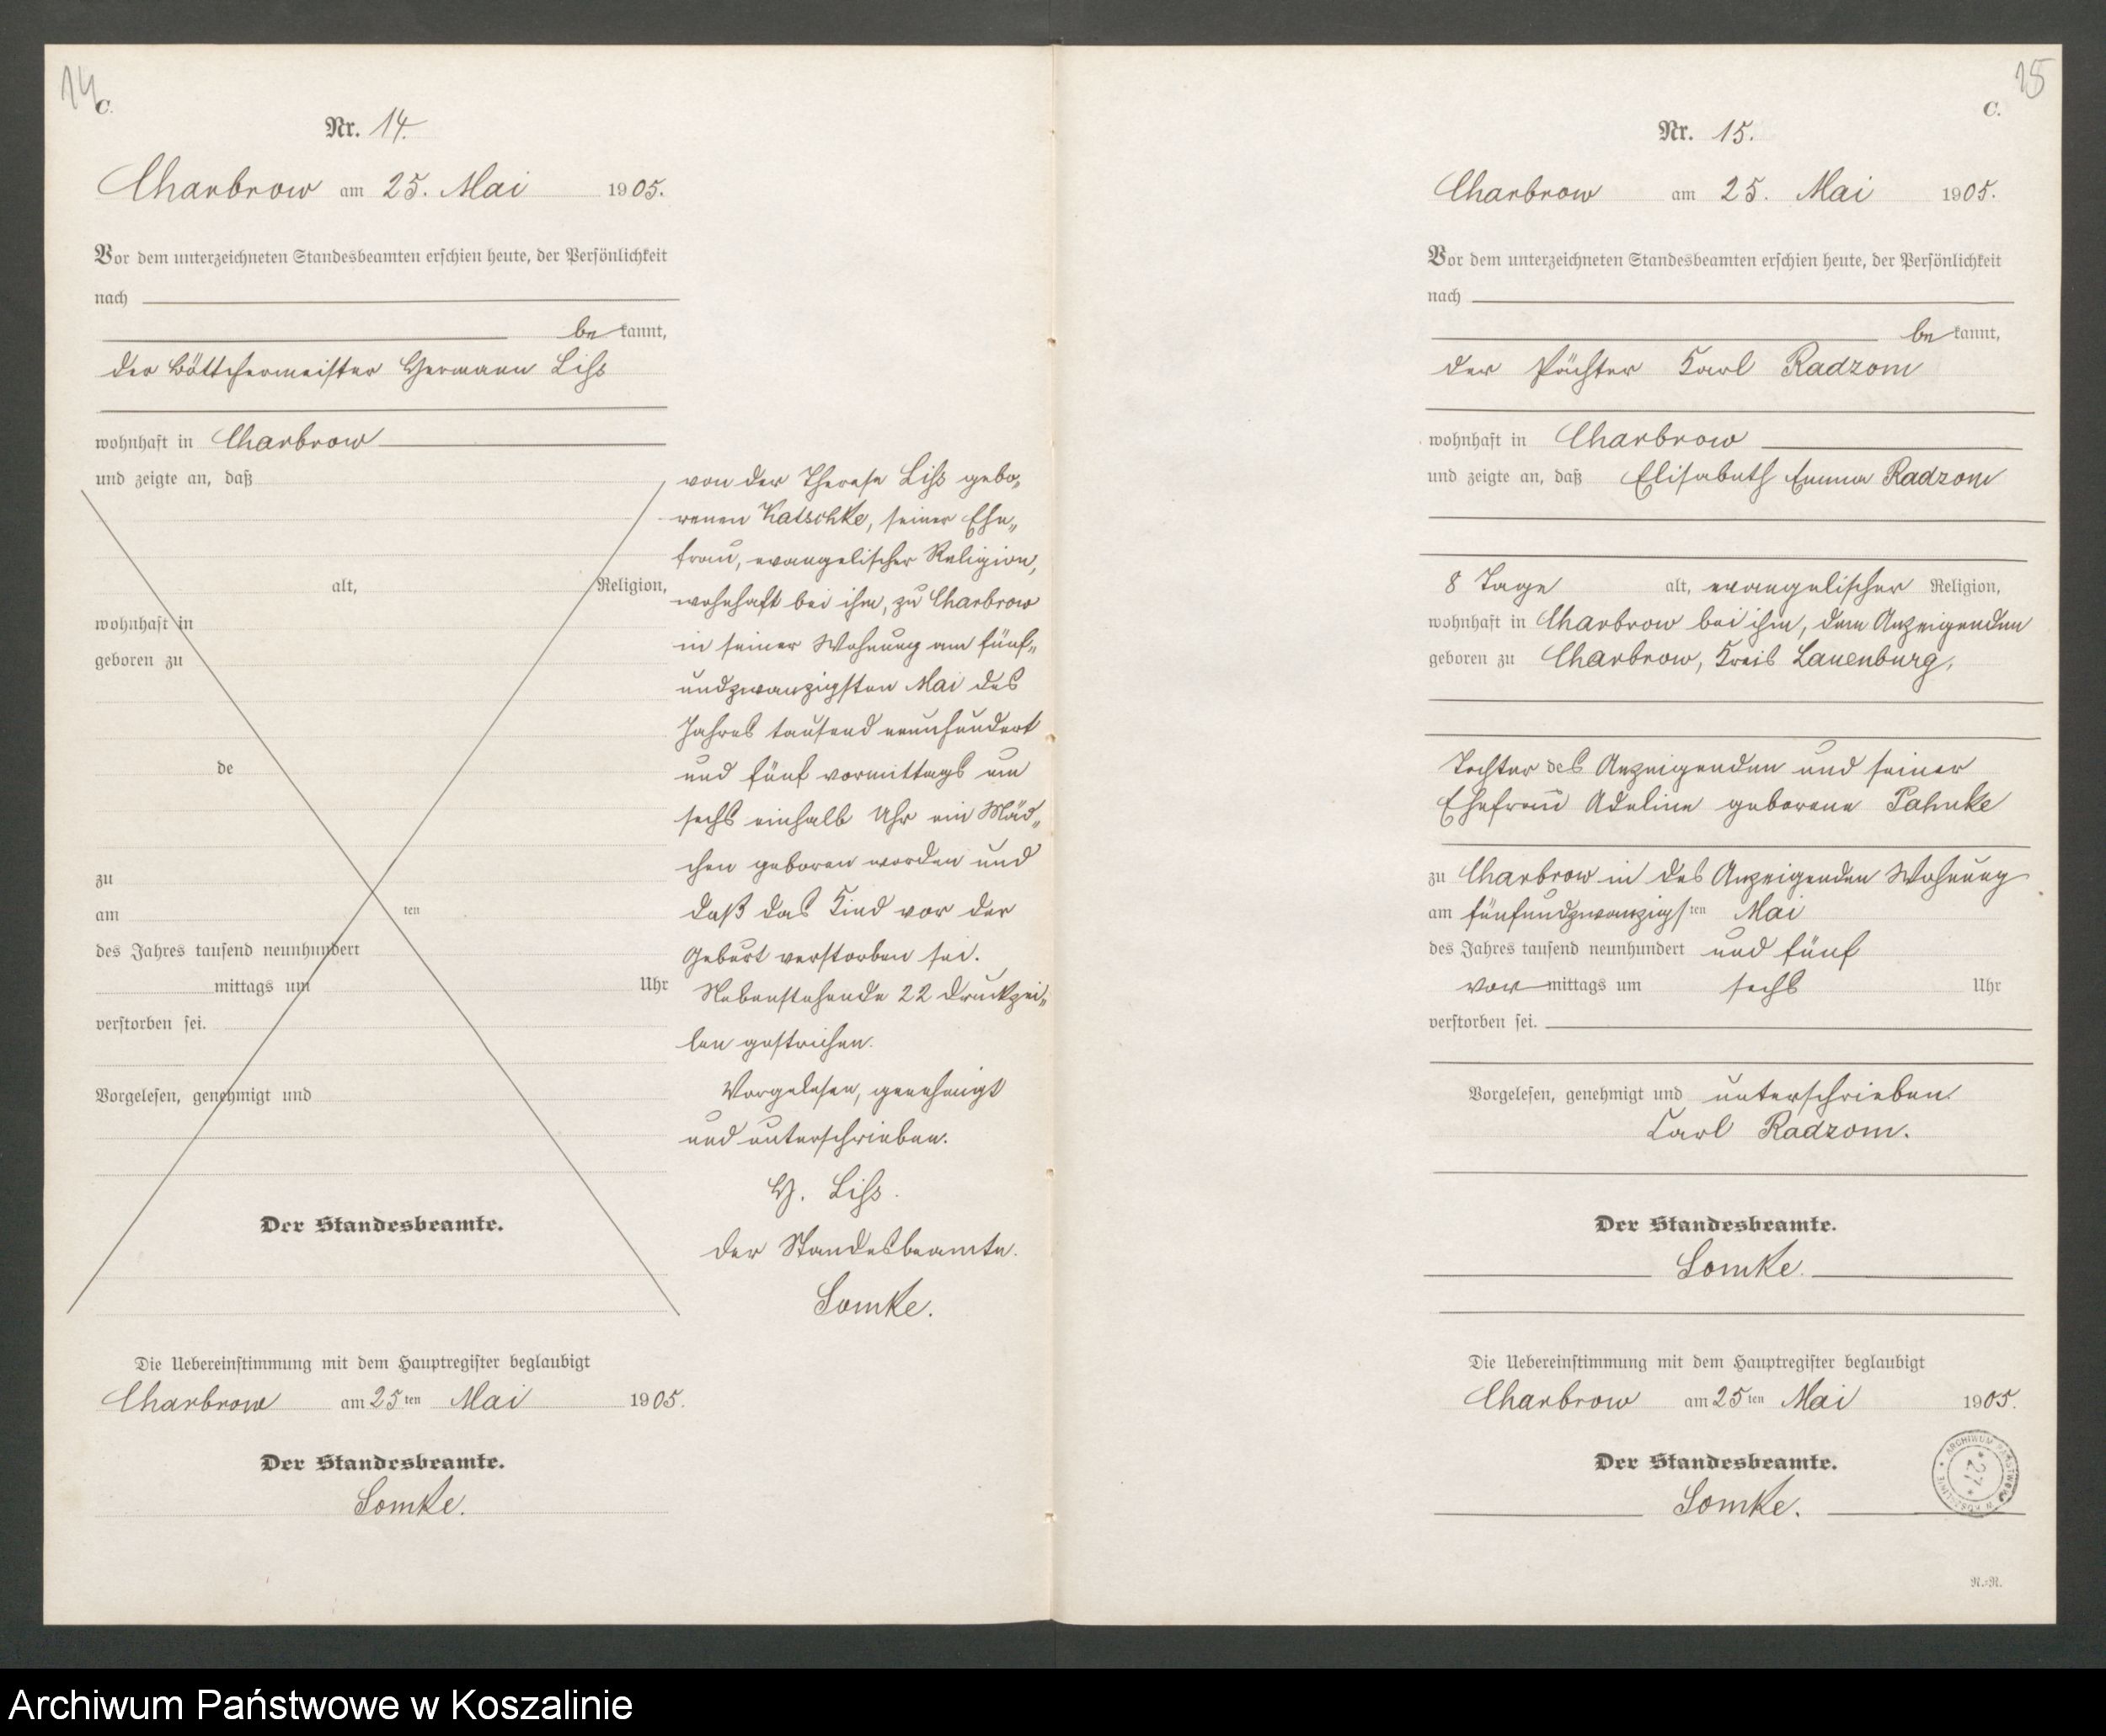 14
C.
Nr. 14.
Charbrow am 25. Mai 1905.
Vor dem unterzeichneten Standesbeamten erschien heute, der Persönlichkeit
nach
be kannt,
der Böttchermeister Hermann Liss
wohnhaft in Charbrow
und zeigte an, daß
alt, Religion,
wohnhaft in
geboren zu
de
zu
am ten
des Jahres tausend neunhundert
mittags um Uhr
verstorben sei.
Vorgelesen, genehmigt und
Der Standesbeamte.
von der Therese Liss gebo„
renen Katschke, seiner Ehe„
frau, evangelischer Religion,
wohnhaft bei ihm, zu Charbrow
in seiner Wohnung am fünf„
undzwanzigsten Mai des
Jahres tausend neunhundert
und fünf vormittags um
sechs einhalb Uhr ein Mäd„
chen geboren worden und
daß das Kind vor der
Geburt verstorben sei.
Nebenstehende 22 Druckzei„
len gestrichen.
Vorgelesen, genehmigt
und unterschrieben.
H. Liss.
Der Standesbeamte.
Lomke.
Die Uebereinstimmung mit dem Hauptregister beglaubigt
Charbrow am 25ten Mai 1905.
Der Standesbeamte.
Lomke.
15
C.
Nr. 15.
Charbrow am 25. Mai 1905.
Vor dem unterzeichneten Standesbeamten erschien heute, der Persönlichkeit
nach
be kannt,
der Pächter Karl Radzom
wohnhaft in Charbrow
und zeigte an, daß Elisabeth Emma Radzom
8 Tage alt, evangelischer Religion,
wohnhaft in Charbrow bei ihm, dem Anzeigenden
geboren zu Charbrow, Kreis Lauenburg,
Tochter des Anzeigenden und seiner
Ehefrau Adeline geborene Pahnke
zu Charbrow in des Anzeigenden Wohnung
am fünfundzwanzigsten Mai
des Jahres tausend neunhundert und fünf
vor mittags um sechs Uhr
verstorben sei.
Vorgelesen, genehmigt und unterschrieben.
Carl Radzom.
Der Standesbeamte.
Lomke.
Die Uebereinstimmung mit dem Hauptregister beglaubigt
Charbrow am 25ten Mai 1905.
Der Standesbeamte.
Lomke.
ARCHIWUM PAŃSTWOWE W KOSZALINIE
* 27 *
N.=N.
Archiwum Państwowe w Koszalinie